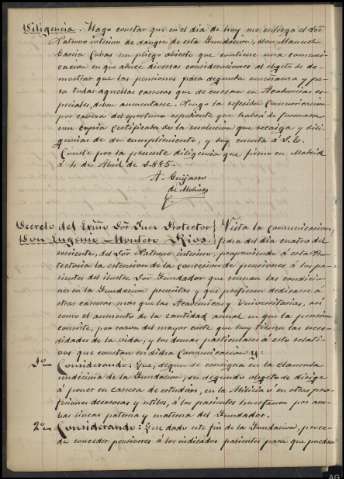 Diligencia. Hago constar que en el dia de hoy, me entrega el Sor
Patrono interino de sangre de esta Fundacion, don Manuel
Garcia Cubas un pliego abierto que contiene una comunica-
cion en que aduce diversas consideraciones al objeto de de-
mostrar que las pensiones para segunda enseñanza y pa-
ra todas aquellas carreras que se cursan en Academias es-
peciales, deben aumentarse. Ponga la referida Comunicacion
por cabeza del oportuno espediente que habrá de formarse
una copia certificada de la resolucion que recaiga y dili-
gencias de su cumplimiento, y doy cuenta á S.E.
Conste por la presente diligencia que firmo en Madrid
á 4 de Abril de 1885.
A. Guijarro
de Molina
Decreto del Exmo Sor Juez Protector Vista la comunicacion,
Don Eugenio Montero Rios. fecha del dia cuatro del
corriente, del Sor Patrono interino, proponiendo á esta Pro-
tectoria la estension de la concesion de pensiones á los pa-
rientes del ilustre Sor Fundador que reunan las condicio-
nes en la Fundacion prescritas y que prefieran dedicarse a
otras carreras mas que las Académicas y Universitarias, así
como el aumento de la cantidad anual en que la pension
consiste, por causa del mayor coste que hoy tienen las nece-
sidades de la vida, y los demas particulares á esto relati-
vos que constan en dicha Comunicacion y
1o Considerando: Que, segun se consigna en la Clausula
undécima de la Fundacion, su segundo objeto se dirige
á poner en carrera de estudios, en la Milicia ú en otras pro-
fesiones decorosas y útiles, á los parientes huerfanos por am-
bas lineas paterna y materna del Fundador.
2o Considerando: Que dado este fin de la Fundacion, proce-
de conceder pensiones á los indicados parientes para que puedan
AG